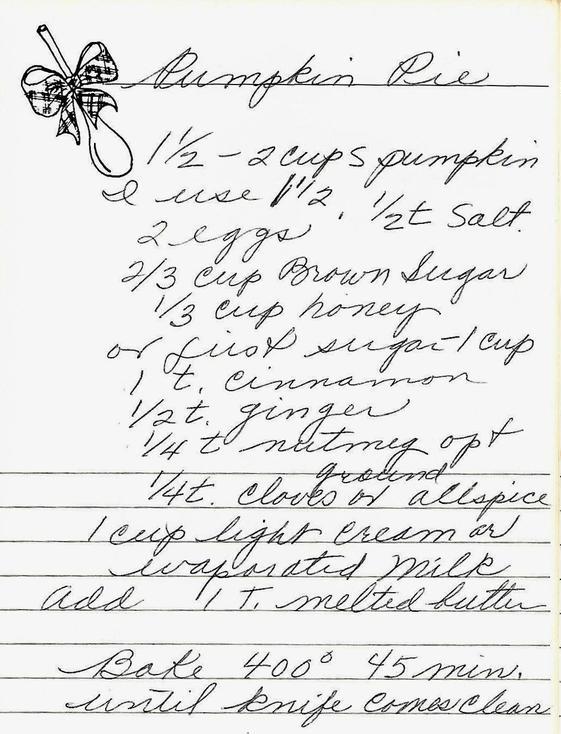 Pumpkin Pie
1 1/2 - 2 cups pumpkin
I use 1 1/2. 1/2 t Salt.
2 eggs
2/3 cup Brown Sugar
1/3 cup honey
or just sugar - 1 cup
1 t. cinnamon
1/2 t. ginger
1/4 t nutmeg opt
ground
1/4 t. cloves or allspice
1 cup light cream or
evaporated milk
add 1 T. melted butter
Bake 400° 45 min.
until knife comes clean